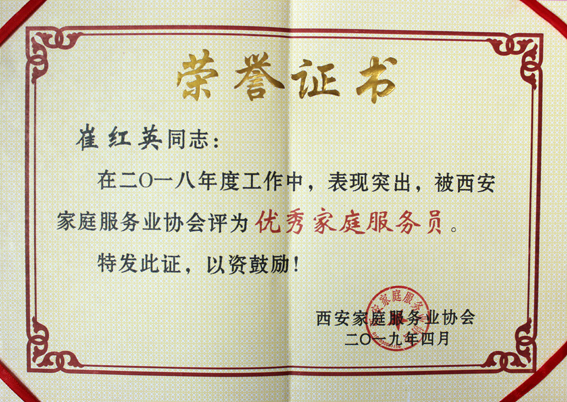 荣誉证书
崔红英同志：
在二〇一八年度工作中，表现突出，被西安
家庭服务业协会评为优秀家庭服务员。
特发此证，以资鼓励！
西安家庭服务业协会
二〇一九年四月
西安家庭服务业协会